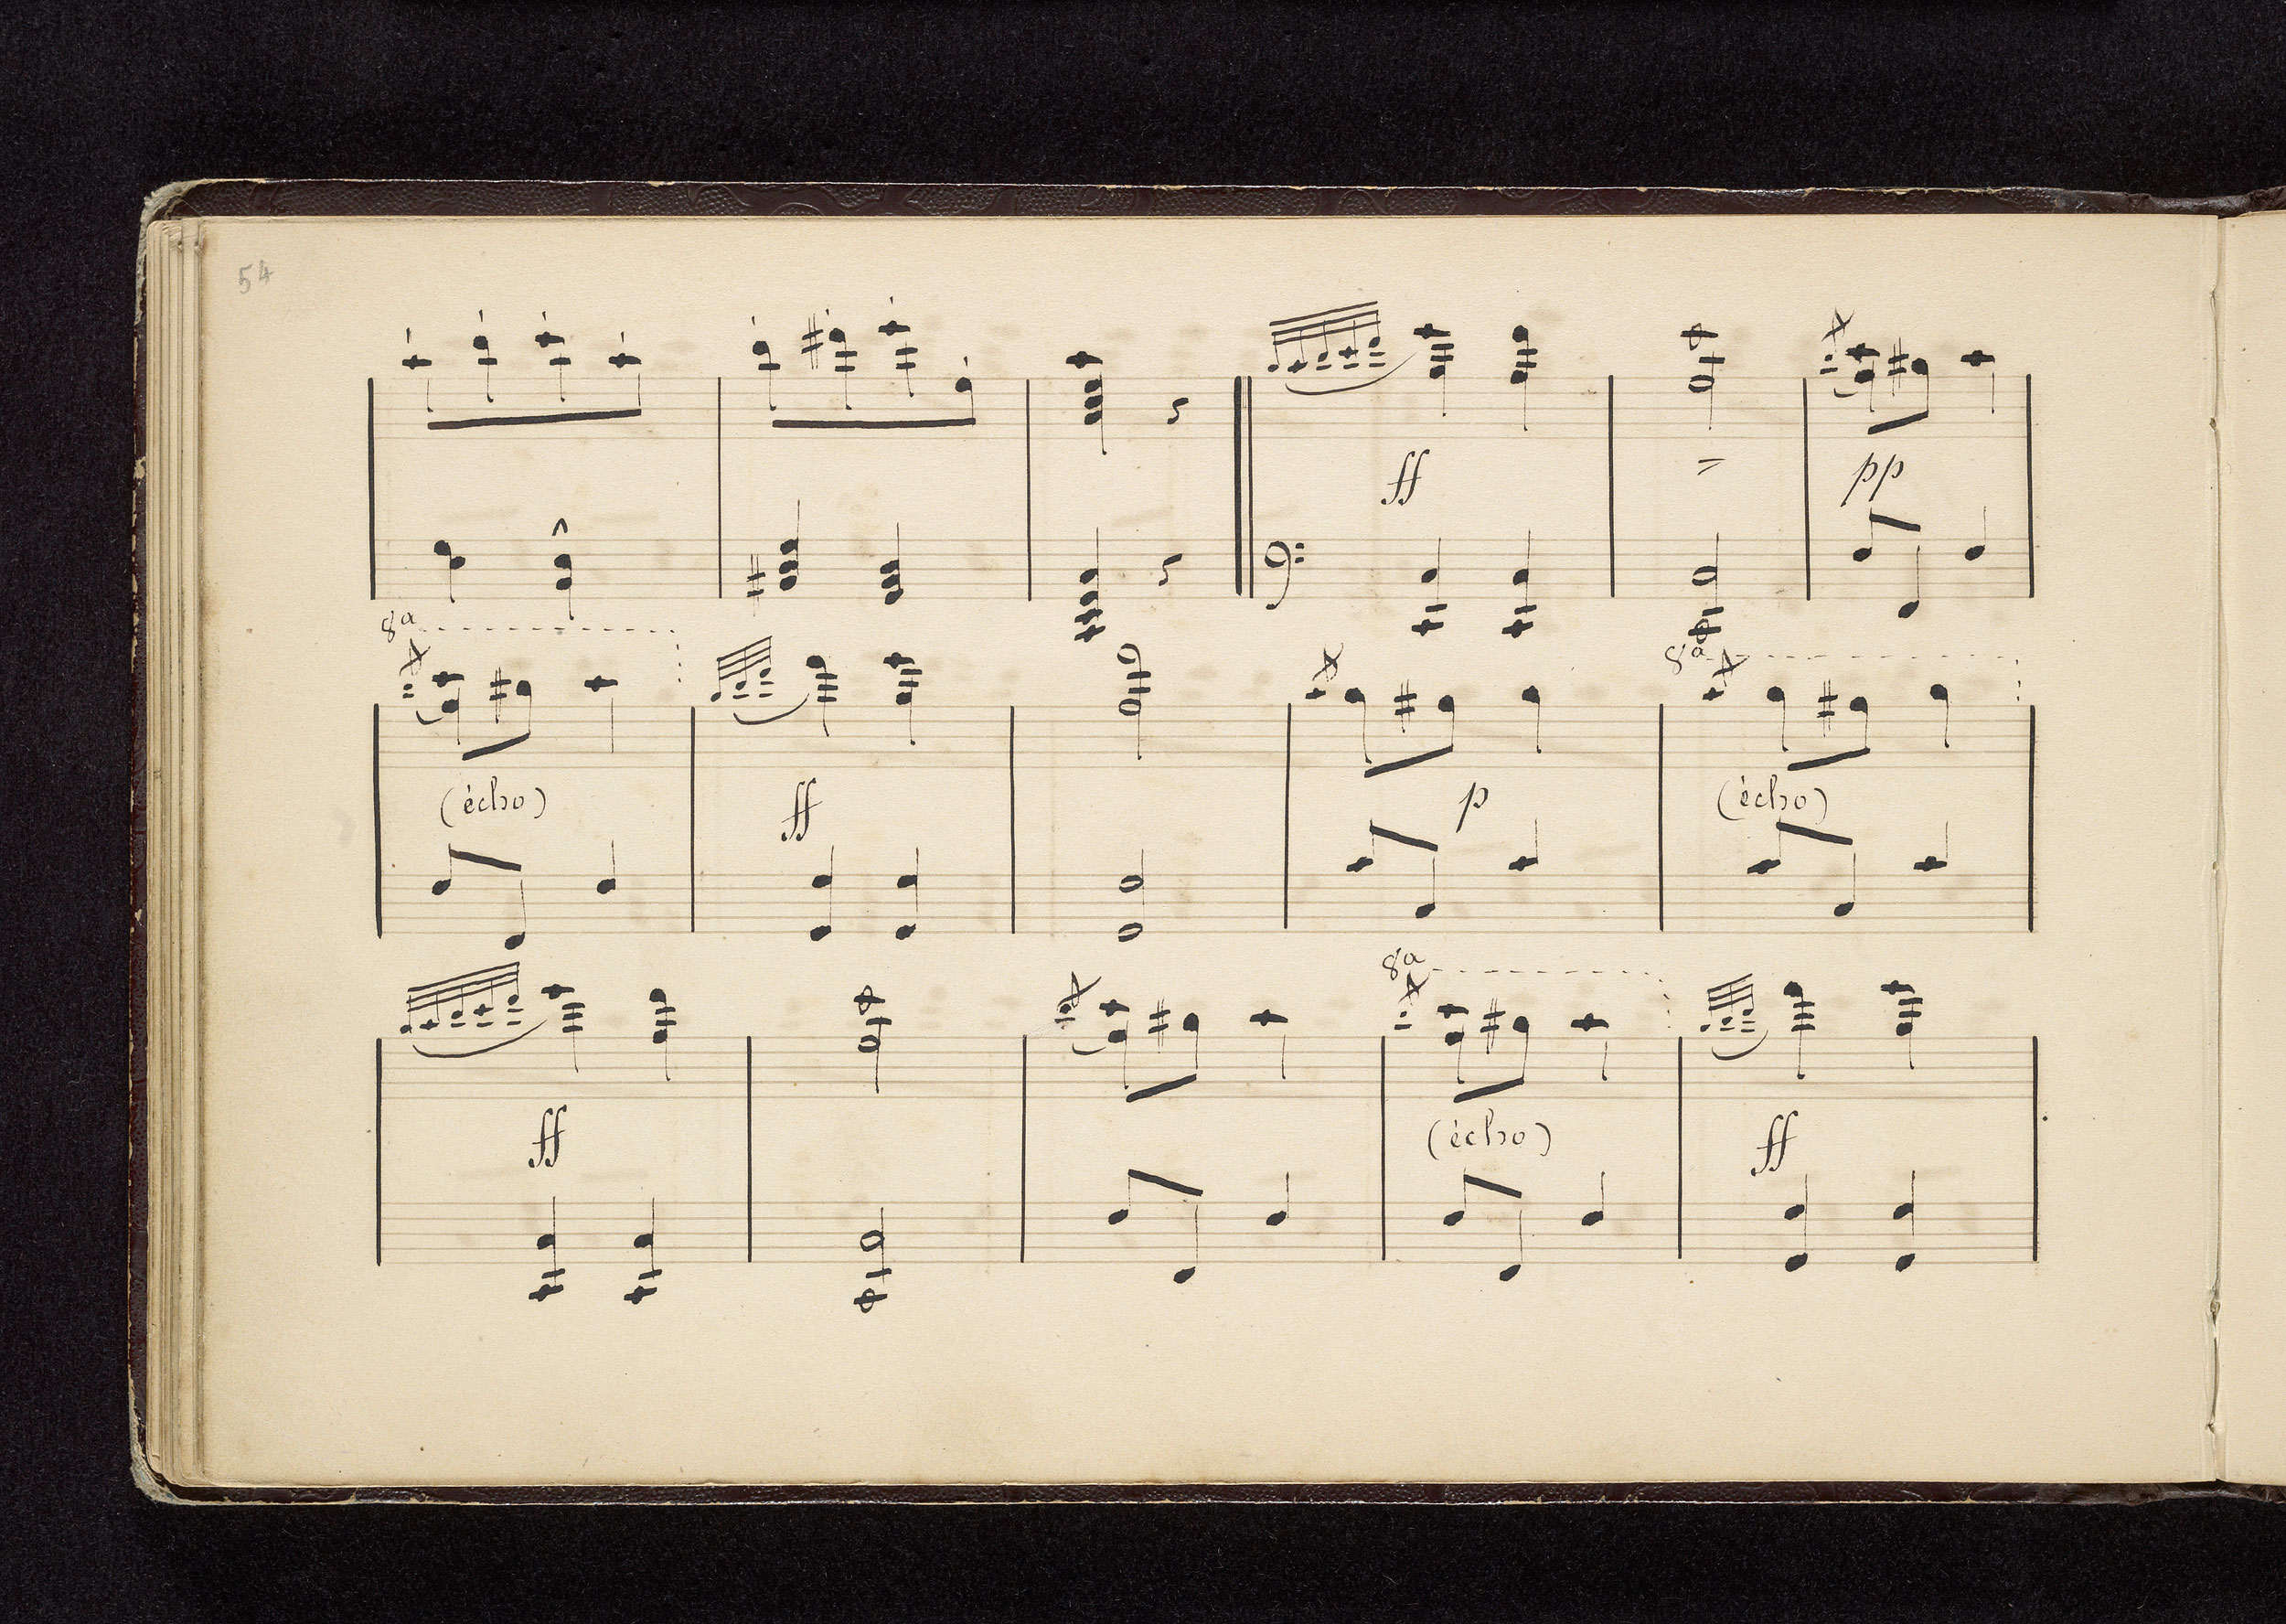 54
ff
pp
8a
8a
(écho)
ff
p
(écho)
8a
ff
(écho)
ff